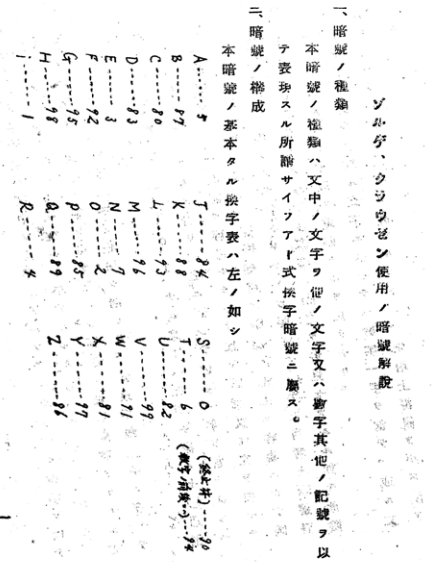 ゾルゲ、クラウゼン使用ノ暗號解說
一、暗號ノ種類
本暗號ノ種類ハ文中ノ文字ヲ他ノ文字又ハ數字其他ノ記號ヲ以
テ表現スル所謂サイフアー式換字暗號ニ屬ス。
二、暗號ノ構成
本暗號ノ基本タル換字表ハ左ノ如シ
A------5
B------87
C------80
D------83
E------3
F------92
G------95
H------98
i------1
J------84
K------88
L------93
M------96
N------7
O------2
P------85
Q------89
R------4
S------0
T------6
U------82
V------99
W------91
X------81
Y------97
Z------86
(終止符)----90
(數字ノ前後)---94